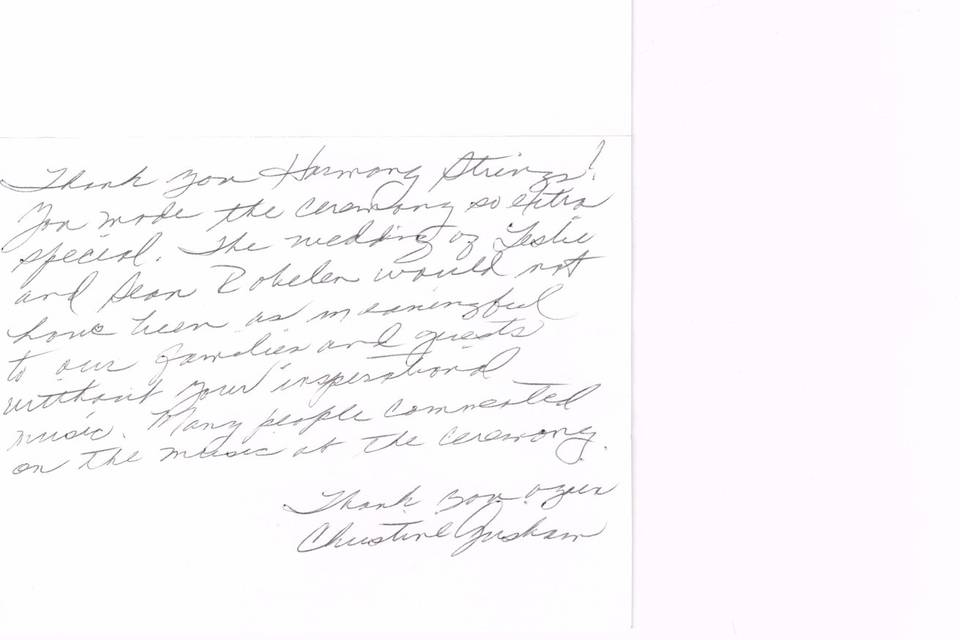 Thank you Harmony Strings!
You made the ceremony so extra
special. The wedding of Leslie
and Sean Robelen would not
have been as meaningful
to our families and guests
without your inspirational
music. Many people commented
on the music at the ceremony.
Thank you again
Christine